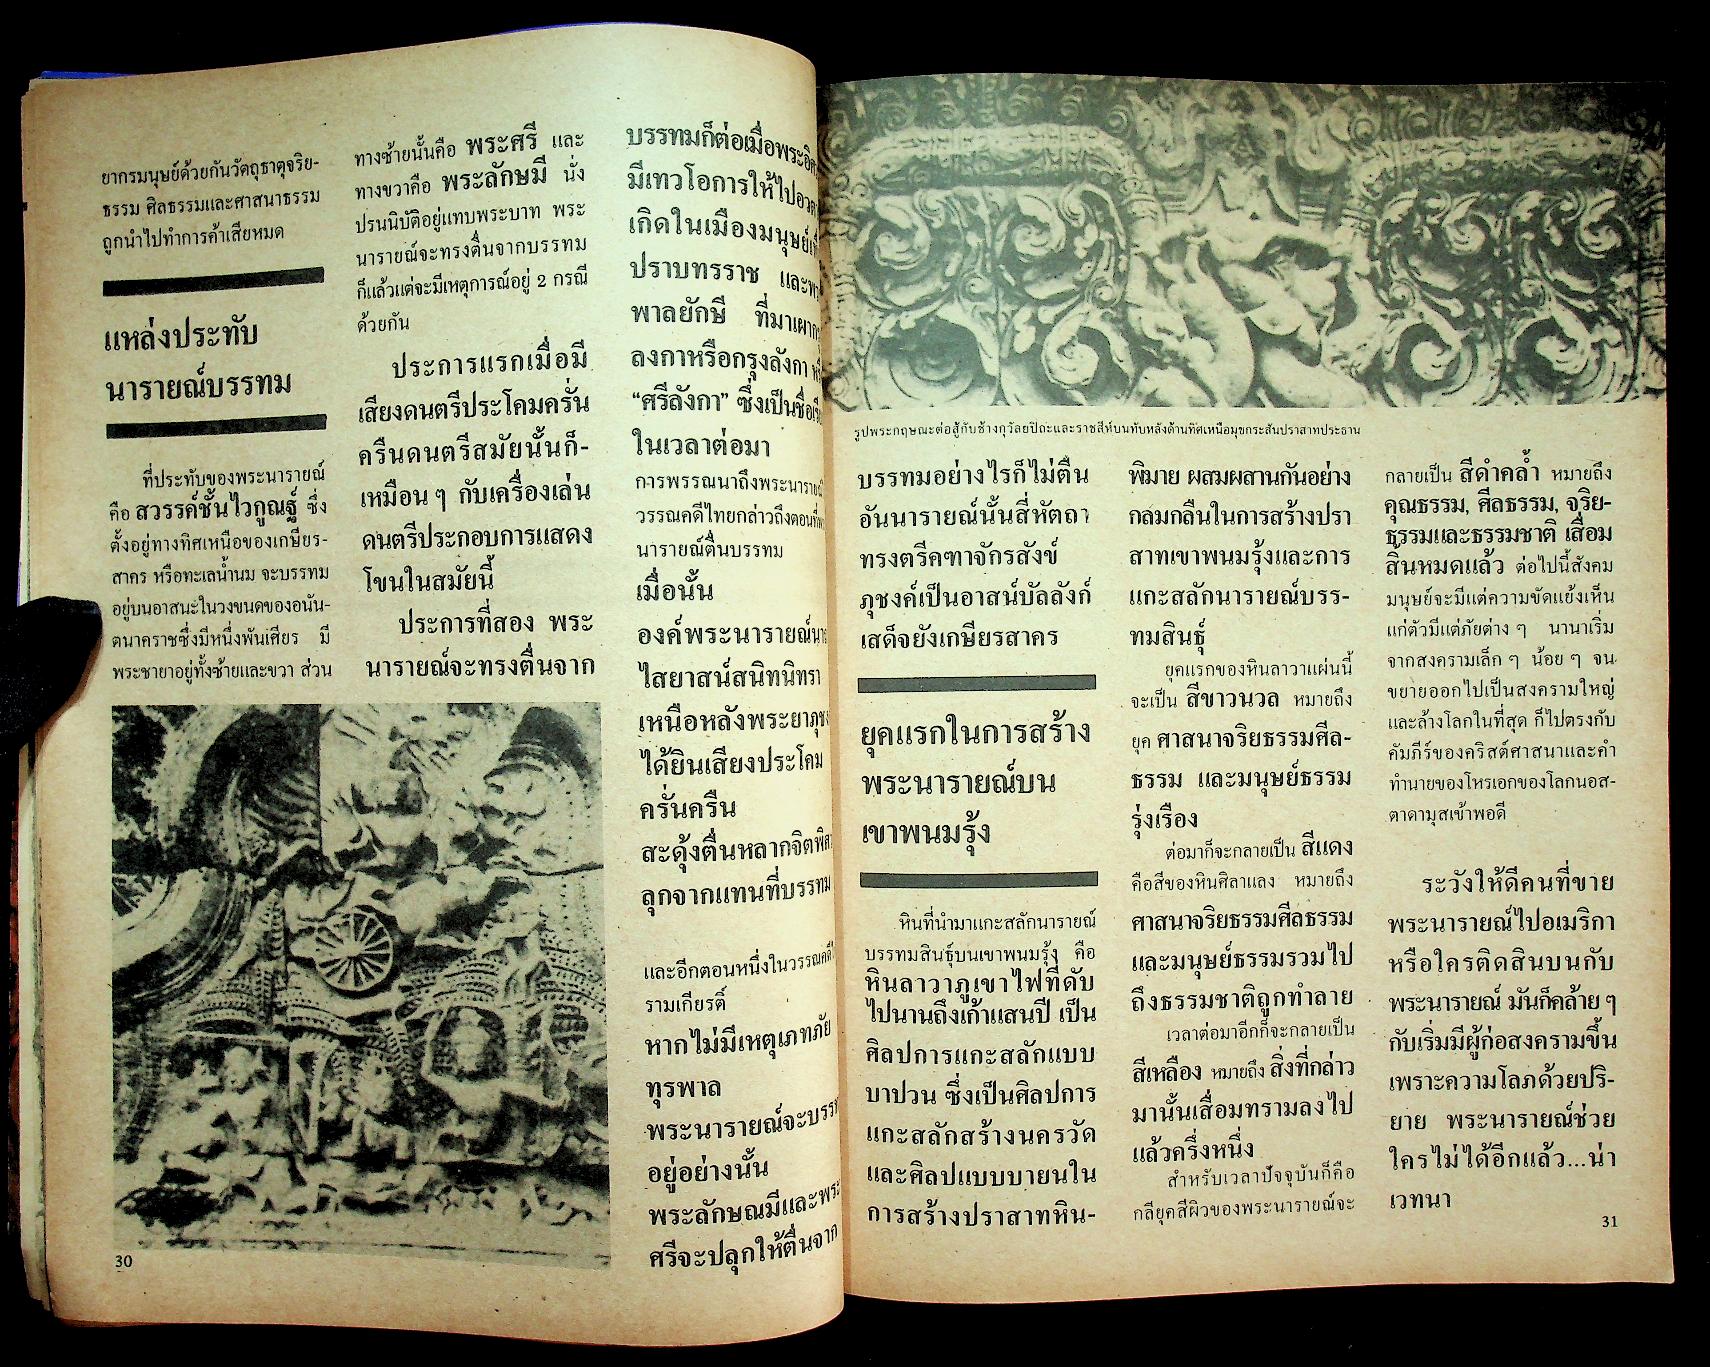 ยากรมนุษย์ด้วยกันวัตถุธาตุจริย-
ธรรม ศิลธรรมและศาสนาธรรม
ถูกนำไปทำการค้าเสียหมด
แหล่งประทับ
นารายณ์บรรทม
ที่ประทับของพระนารายณ์
คือ สวรรค์ชั้นไวกูณฐ์ ซึ่ง
ตั้งอยู่ทางทิศเหนือของเกษียร-
สาคร หรือทะเลน้ำนม จะบรรทม
อยู่บนอาสนะในวงขนดของอนัน-
ตนาคราชซึ่งมีหนึ่งพันเศียร มี
พระชายาอยู่ทั้งซ้ายและขวา ส่วน
ทางซ้ายนั้นคือ พระศรี และ
ทางขวาคือ พระลักษมี นั่ง
ปรนนิบัติอยู่แทบพระบาท พระ
นารายณ์จะทรงตื่นจากบรรทม
ก็แล้วแต่จะมีเหตุการณ์อยู่ 2 กรณี
ด้วยกัน
ประการแรกเมื่อมี
เสียงดนตรีประโคมครั่น
ครืนดนตรีสมัยนั้นก็-
เหมือนๆ กับเครื่องเล่น
ดนตรีประกอบการแสดง
โขนในสมัยนี้
ประการที่สอง พระ
นารายณ์จะทรงตื่นจาก
บรรทมก็ต่อเมื่อ
มีเทวโองการให้ไป
เกิดในเมืองมนุษย์
ปราบทรราช
พาลยักษี ที่มา
ลงกาหรือกรุงลังกา
“ศรีลังกา” ซึ่งเป็น
ในเวลาต่อมา
การพรรณนาถึงพระนารายณ์
วรรณคดีไทยกล่าวถึงตอนที่
นารายณ์ตื่นบรรทม
เมื่อนั้น
องค์พระนารายณ์
ไสยาสน์สนิทนิทรา
เหนือหลังพระยา
ได้ยินเสียงประโคม
ครั่นครืน
สะดุ้งตื่นหลากจิต
ลุกจากแทนที่บรรทม
และอีกตอนหนึ่งในวรรณคดี
รามเกียรติ์
หากไม่มีเหตุเภทภัย
ทุรพาล
พระนารายณ์จะ
อยู่อย่างนั้น
พระลักษณมีและพระ
ศรีจะปลุกให้ตื่นจาก
30
รูปพระกฤษณะต่อสู้กับช้างกุวัลยปิถะและราชสีห์บนทับหลังด้านทิศเหนือมุขกระสันปราสาทประธาน
บรรทมอย่างไรก็ไม่ตื่น
อันนารายณ์นั้นสี่หัตถา
ทรงตรีคฑาจักรสังข์
ภุชงค์เป็นอาสน์บัลลังก์
เสด็จยังเกษียรสาคร
ยุคแรกในการสร้าง
พระนารายณ์บน
เขาพนมรุ้ง
หินที่นำมาแกะสลักนารายณ์
บรรทมสินธุ์บนเขาพนมรุ้ง คือ
หินลาวาภูเขาไฟที่ดับ
ไปนานถึงเก้าแสนปี เป็น
ศิลปการแกะสลักแบบ
บาปวน ซึ่งเป็นศิลปการ
แกะสลักสร้างนครวัด
และศิลปแบบบายนใน
การสร้างปราสาทหิน-
พิมาย ผสมผสานกันอย่าง
กลมกลืนในการสร้างปรา
สาทเขาพนมรุ้งและการ
แกะสลักนารายณ์บรร-
ทมสินธุ์
ยุคแรกของหินลาวาแผ่นนี้
จะเป็น สีขาวนวล หมายถึง
ยุค ศาสนาจริยธรรมศีล-
ธรรม และมนุษย์ธรรม
รุ่งเรือง
ต่อมาก็จะกลายเป็น สีแดง
คือสีของหินศิลาแลง หมายถึง
ศาสนาจริยธรรมศีลธรรม
และมนุษย์ธรรมรวมไป
ถึงธรรมชาติถูกทำลาย
เวลาต่อมาอีกก็จะกลายเป็น
สีเหลือง หมายถึง สิ่งที่กล่าว
มานั้นเสื่อมทรามลงไป
แล้วครึ่งหนึ่ง
สำหรับเวลาปัจจุบันก็คือ
กลียุคสีผิวของพระนารายณ์จะ
กลายเป็น สีดำคล้ำ หมายถึง
คุณธรรม, ศีลธรรม, จริย-
ธรรมและธรรมชาติ เสื่อม
สิ้นหมดแล้ว ต่อไปนี้สังคม
มนุษย์จะมีแต่ความขัดแย้งเห็น
แก่ตัวมีแต่ภัยต่าง ๆ นานาเริ่ม
จากสงครามเล็ก ๆ น้อย ๆ จน
ขยายออกไปเป็นสงครามใหญ่
และล้างโลกในที่สุด ก็ไปตรงกับ
คัมภีร์ของคริสต์ศาสนาและคำ
ทำนายของโหรเอกของโลกนอส-
ตาดามุสเข้าพอดี
ระวังให้ดีคนที่ขาย
พระนารายณ์ไปอเมริกา
หรือใครติดสินบนกับ
พระนารายณ์ มันก็คล้าย ๆ
กับเริ่มมีผู้ก่อสงครามขึ้น
เพราะความโลภด้วยปริ-
ยาย พระนารายณ์ช่วย
ใครไม่ได้อีกแล้ว...น่า
เวทนา
31